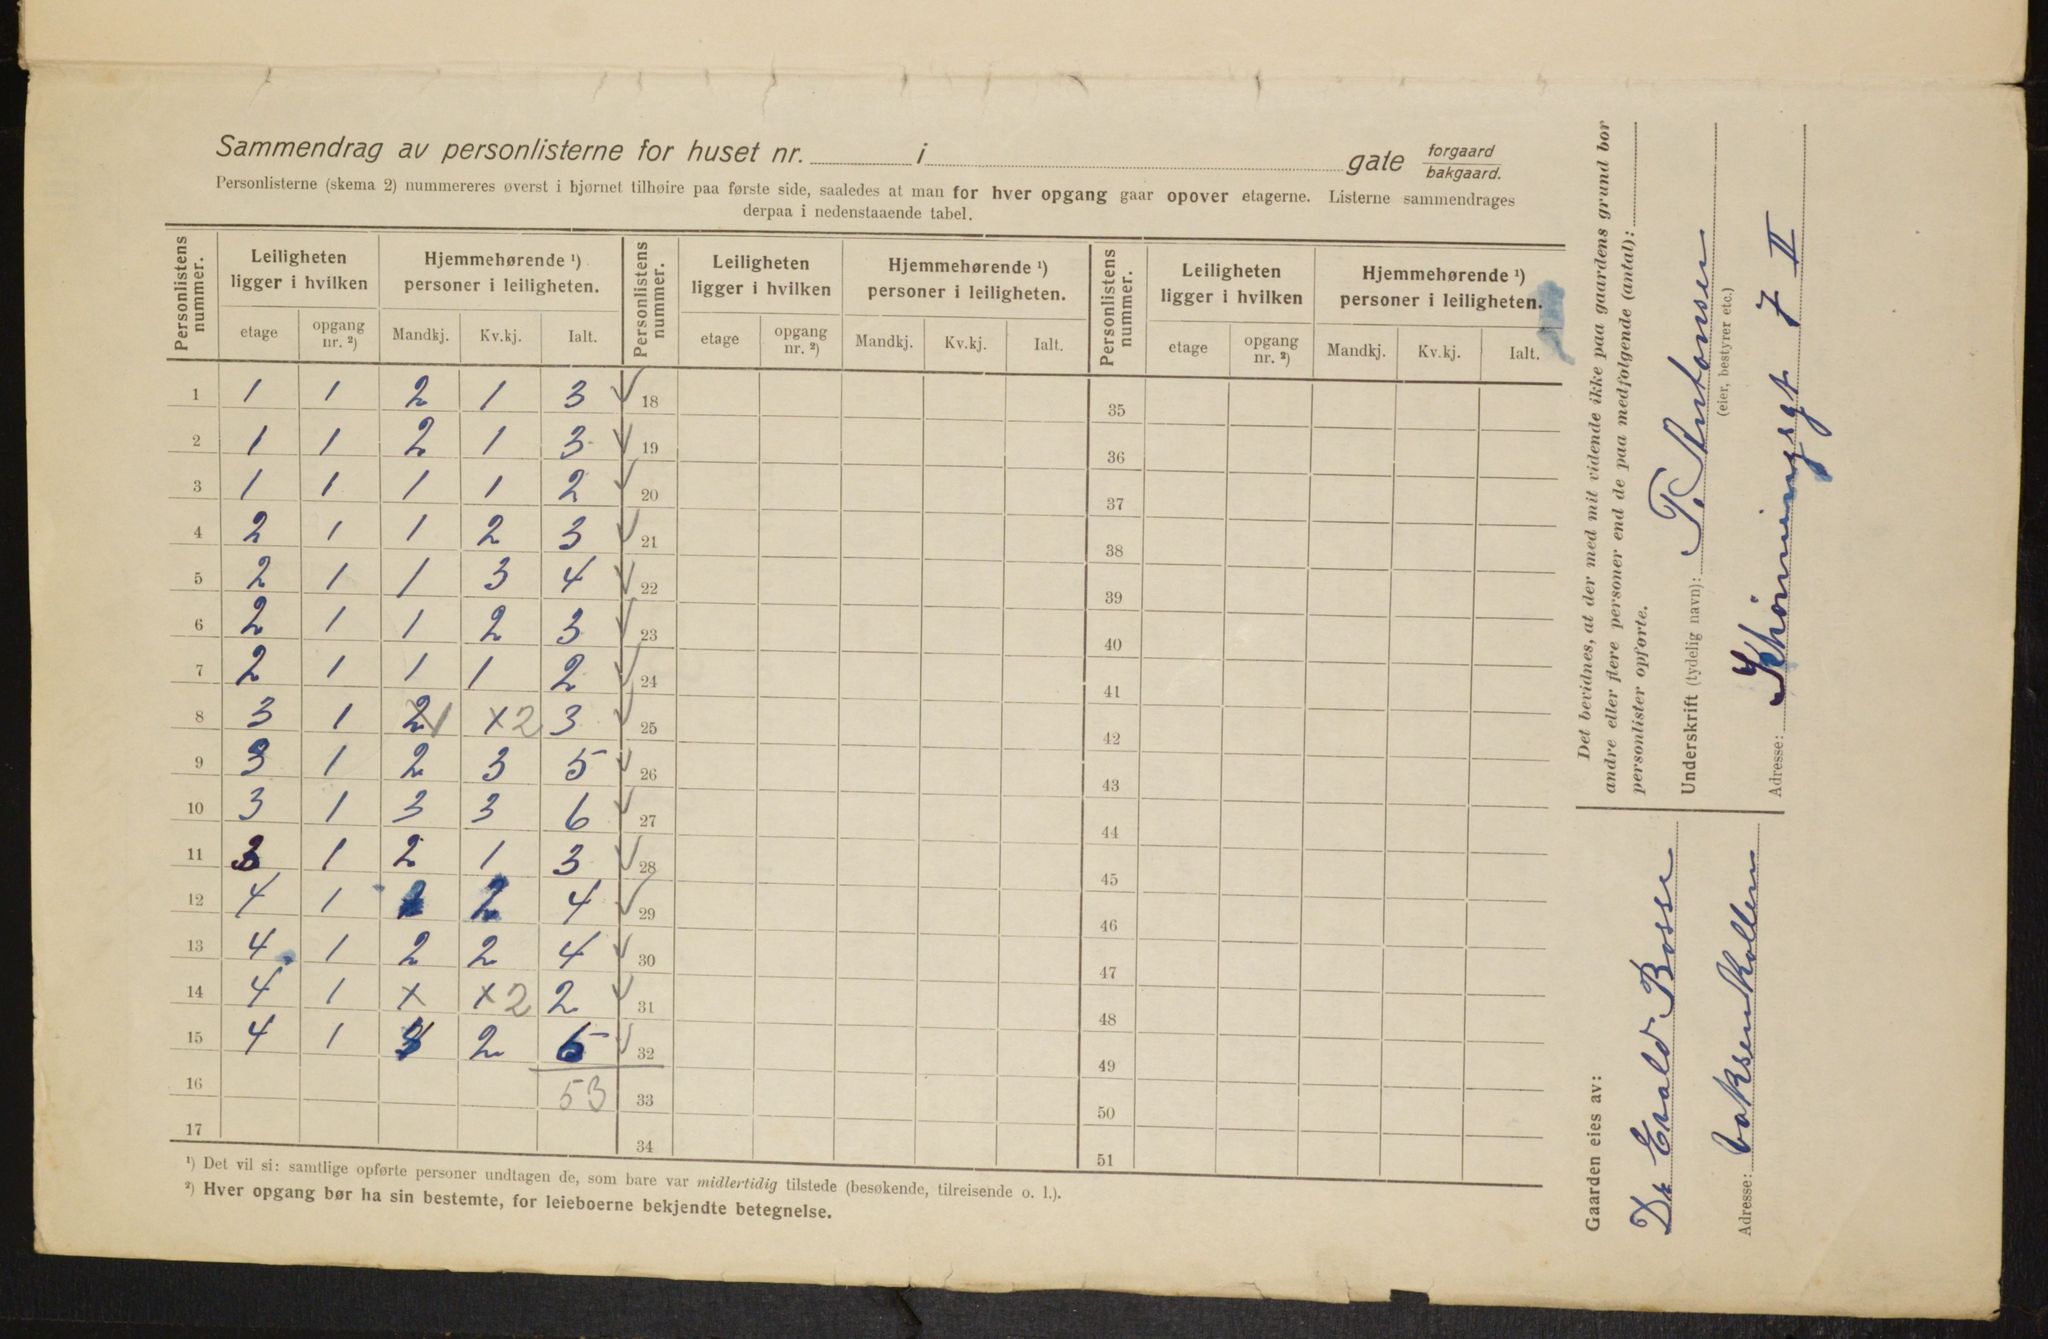 Sammendrag av personlisterne for huset nr. i gate forgaard bakgaard.
Personlisterne (skema 2) nummereres øverst i hjørnet tilhøire paa første side, saaledes at man for hver opgang gaar opover etagerne. Listerne sammendrages
derpaa i nedenstaaende tabel.
Personlistens nummer. Leiligheten ligger i hvilken Hjemmehørende ¹) personer i leiligheten. Personlistens nummer. Leiligheten ligger i hvilken Hjemmehørende ¹) personer i leiligheten. Personlistens nummer. Leiligheten ligger i hvilken Hjemmehørende ¹) personer i leiligheten.
etage opgang nr. ²) Mandkj. Kv.kj. Ialt. etage opgang nr. ²) Mandkj. Kv.kj. Ialt. etage opgang nr. ²) Mandkj. Kv.kj. Ialt.
1 1 1 2 1 3 ✓ 18 35
2 1 1 2 1 3 ✓ 19 36
3 1 1 1 1 2 ✓ 20 37
4 2 1 1 2 3 ✓ 21 38
5 2 1 1 3 4 ✓ 22 39
6 2 1 1 2 3 ✓ 23 40
7 2 1 1 1 2 ✓ 24 41
8 3 1 2 1 x 2 3 ✓ 25 42
9 3 1 2 3 5 ✓ 26 43
10 3 1 3 3 6 ✓ 27 44
11 3 1 2 1 3 ✓ 28 45
12 4 1 2 4 ✓ 29 46
13 4 1 2 2 4 ✓ 30 47
14 4 1 x x 2 2 ✓ 31 48
15 4 1 2 5 ✓ 32 49
16 53 33 50
17 34 51
¹) Det vil si: samtlige opførte personer undtagen de, som bare var midlertidig tilstede (besøkende, tilreisende o. l.).
²) Hver opgang bør ha sin bestemte, for leieboerne bekjendte betegnelse.
Det bevidnes, at der med mit vidende ikke paa gaardens grund bor
andre eller flere personer end de paa medfølgende (antal):
personlister opførte.
Underskrift (tydelig navn): T. Antonsen
(eier, bestyrer etc.)
Adresse: Schøningsgt 7 II
Gaarden eies av:
Dr Evald Bosse
Adresse: Voksenkollen